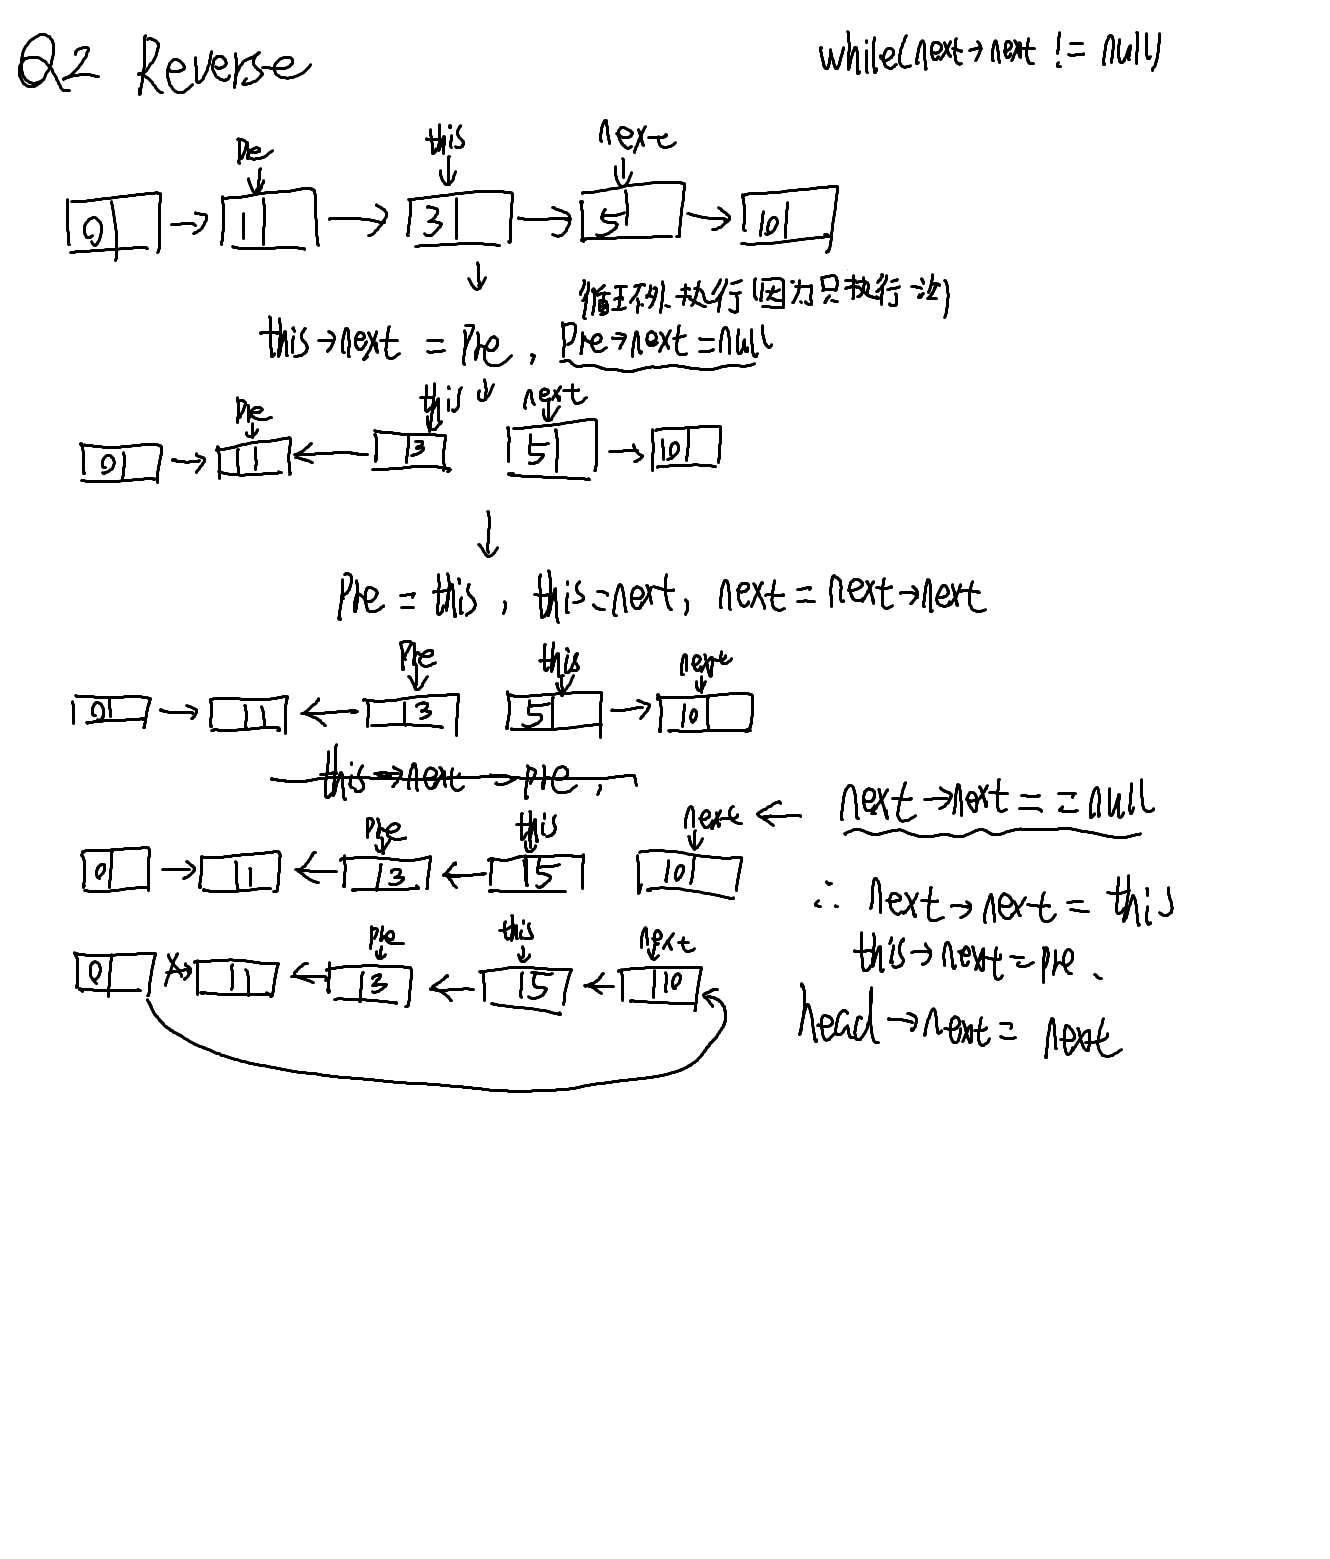 Q2 Reverse
while(next→next != null)
Pre this next
0 → 1 → 3 → 5 → 10
循环外执行(因为只执行一次)
this→next = Pre , Pre→next=null
Pre this next
0 → 1 ← 3 5 → 10
Pre = this , this=next, next = next→next
Pre this next
0 → 1 ← 3 5 → 10
this→next = pre ,
next→next==null
Pre this next ←
0 → 1 ← 3 ← 5 10
∴ next→next = this
pre this next
this→next=pre 、
0 → 1 ← 3 ← 5 ← 10
head→next= next